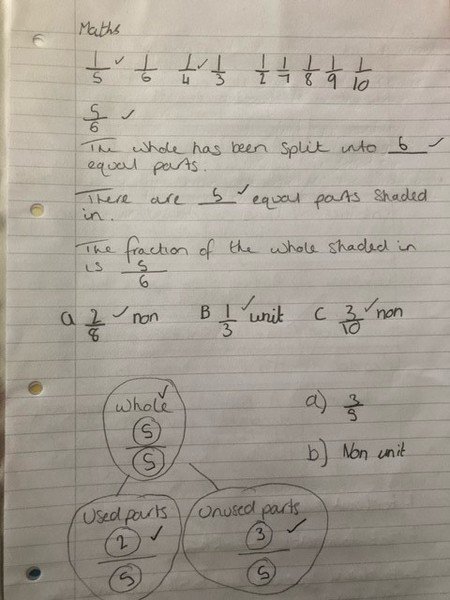 Maths
1/5 ✓ 1/6 1/4 ✓ 1/3 1/2 1/7 1/8 1/9 1/10
5/6 ✓
The whole has been split into 6 ✓
equal parts.
There are 5 ✓ equal parts shaded
in.
The fraction of the whole shaded in
is 5/6
a 2/8 ✓ non B 1/3 ✓ unit C 3/10 ✓ non
Whole ✓
5/5
a) 3/5
b) Non unit
Used parts
2/5 ✓
Unused parts
3/5 ✓